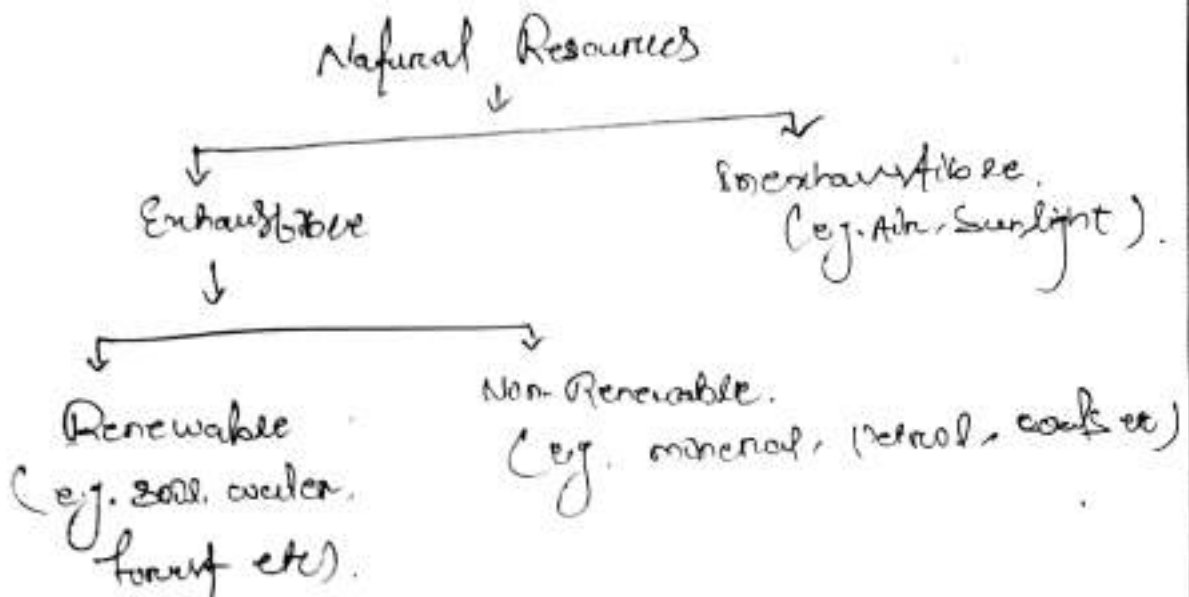 Natural Resources
Exhaustible
Inexhaustible.
(e.g. Air, Sunlight).
Renewable
(e.g. soil, water,
forest etc).
Non-Renewable.
(e.g. mineral, Petrol, coals etc)